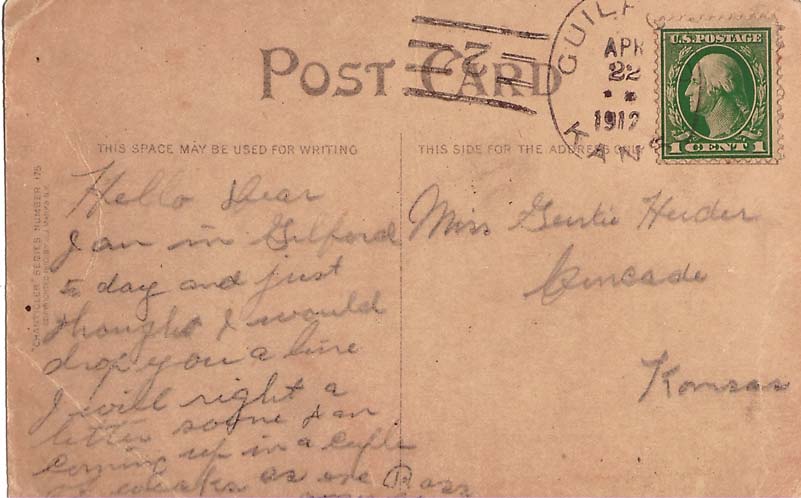 POST CARD
2
GUILF
APR
22
1912
KANS
U.S. POSTAGE
1 CENT 1
THIS SPACE MAY BE USED FOR WRITING
THIS SIDE FOR THE ADDRESS ONLY
"CHANTICLER" SERIES NUMBER 175
Hello Dear
I am in Gilford
to day and just
thought I would
drop you a line
I will right a
letter soone I am
coming up in a
as one
Miss Gertie Heider
Kansas